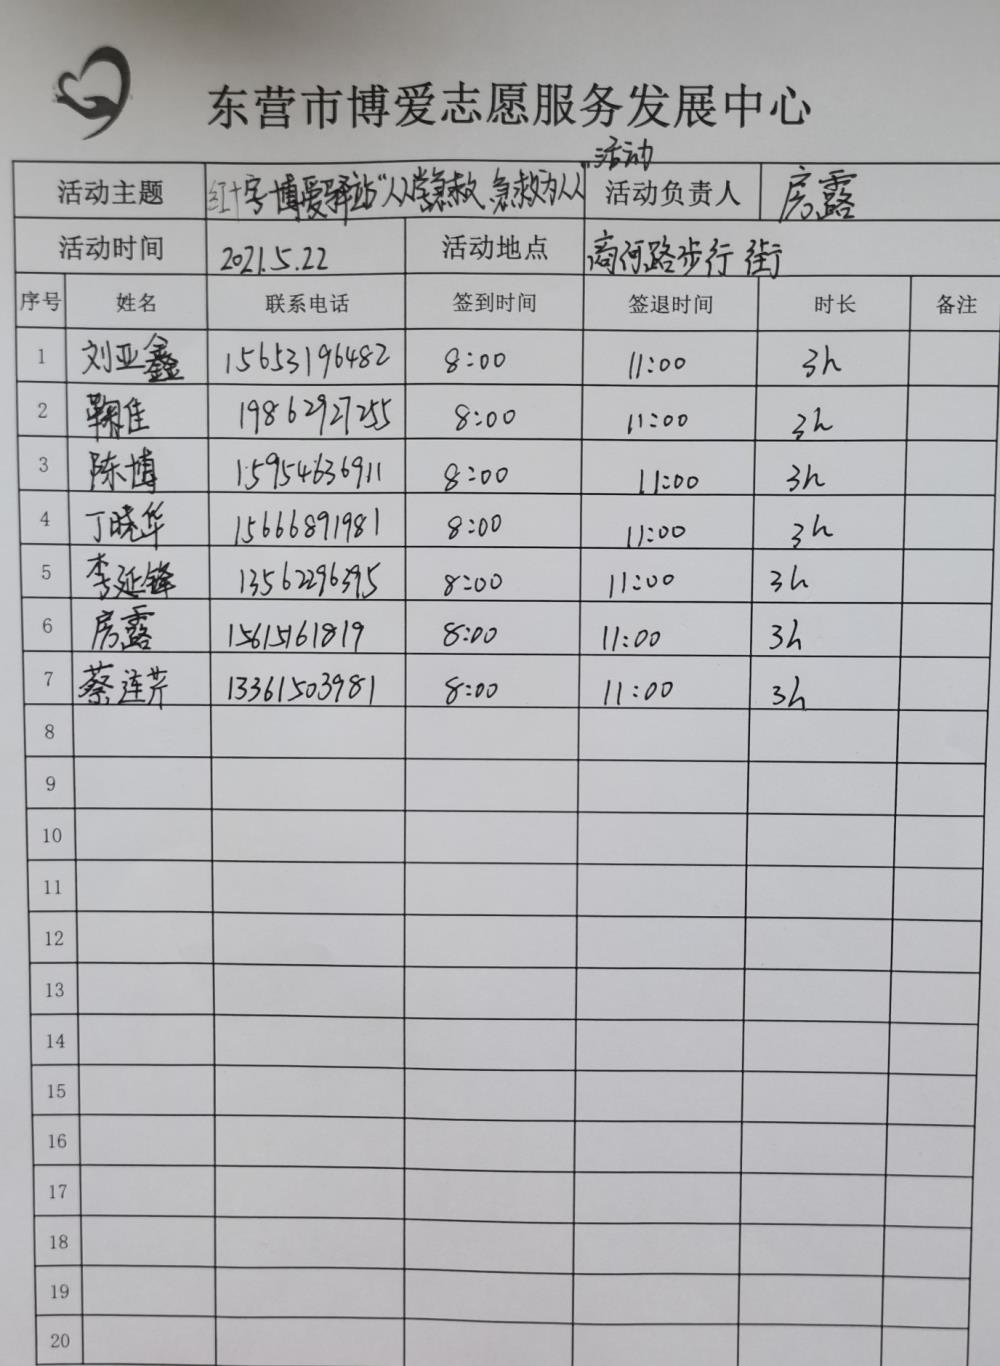 东营市博爱志愿服务发展中心
活动主题 红十字博爱驿站"人人学急救、急救为人人"活动 活动负责人 房露
活动时间 2021.5.22 活动地点 商河路步行街
序号 姓名 联系电话 签到时间 签退时间 时长 备注
1 刘亚鑫 15653196482 8:00 11:00 3h
2 鞠佳 19862927255 8:00 11:00 3h
3 陈博 15954636911 8:00 11:00 3h
4 丁晓华 15666891981 8:00 11:00 3h
5 李延锋 13562296395 8:00 11:00 3h
6 房露 15615161819 8:00 11:00 3h
7 蔡连芹 13361503981 8:00 11:00 3h
8
9
10
11
12
13
14
15
16
17
18
19
20